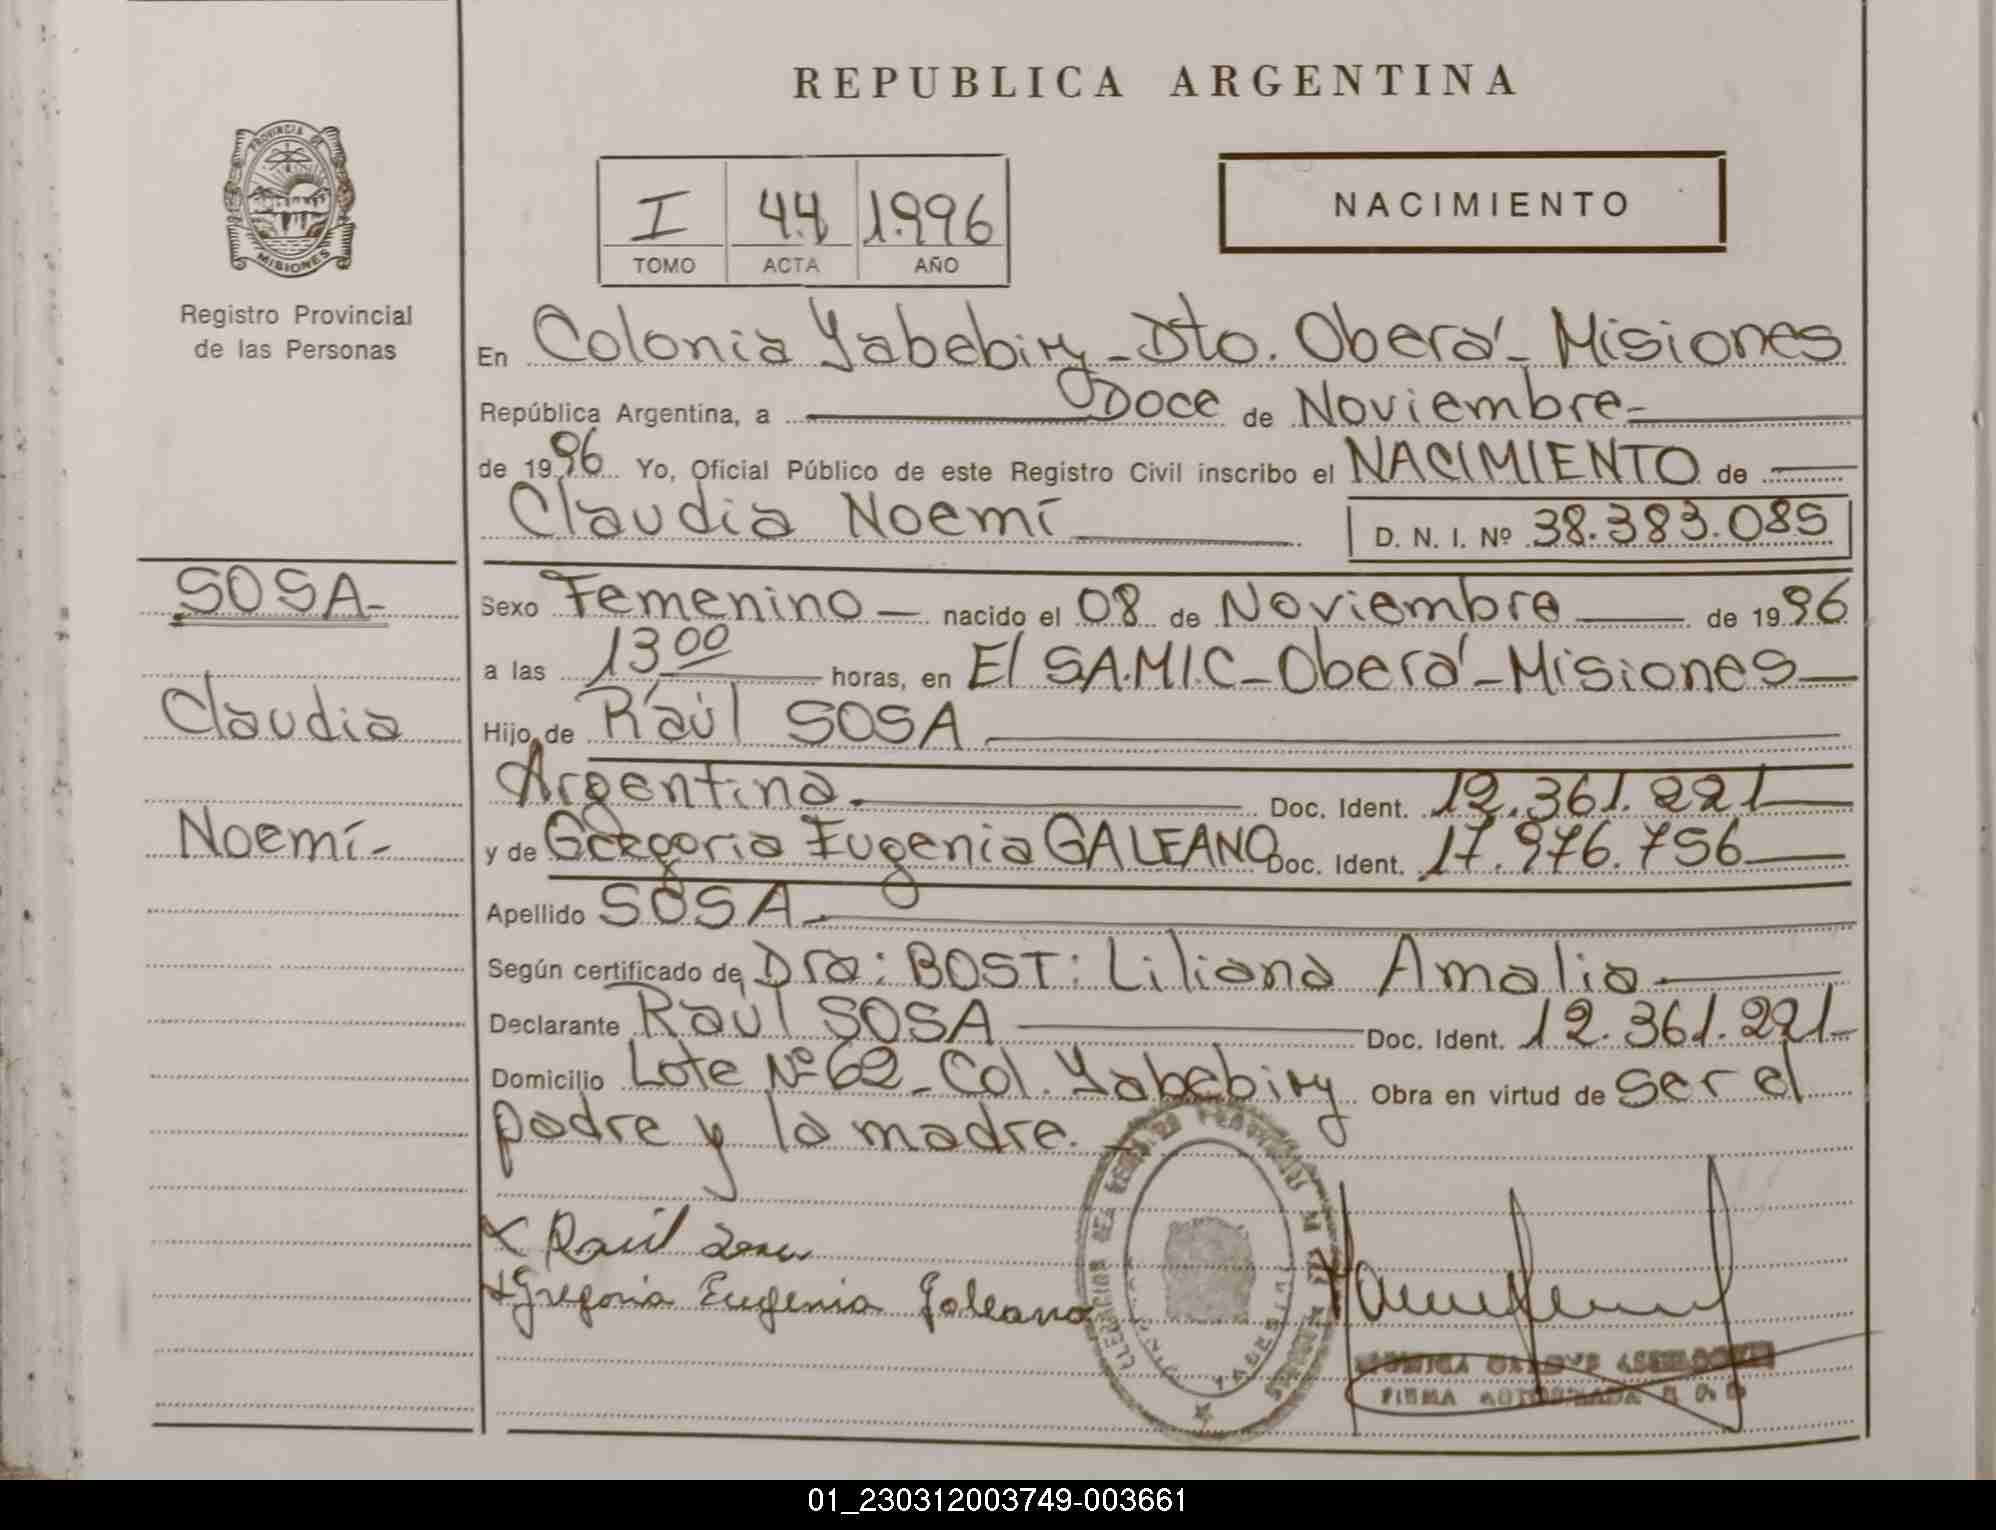 REPUBLICA ARGENTINA
PROVINCIA DE
MISIONES
Registro Provincial
de las Personas
I 44 1996
TOMO ACTA AÑO
NACIMIENTO
En Colonia Yabebiry - Dto. Oberá - Misiones
República Argentina, a Doce de Noviembre
de 1996 Yo, Oficial Público de este Registro Civil inscribo el NACIMIENTO de
Claudia Noemí D. N. I. Nº 38.383.085
SOSA-
Claudia
Noemí-
Sexo Femenino nacido el 08 de Noviembre de 1996
a las 13 00 horas, en El S.A.M.I.C - Oberá - Misiones
Hijo de Raúl SOSA
Argentina. Doc. Ident. 12.361.221
y de Gregoria Eugenia GALEANO Doc. Ident. 17.976.756
Apellido SOSA
Según certificado de Dra: BOST: Liliana Amalia
Declarante Raúl SOSA Doc. Ident. 12.361.221
Domicilio Lote Nº 62 - Col. Yabebiry Obra en virtud de ser el
padre y la madre.
x Raúl Sosa
x Gregoria Eugenia Galeano
FIRMA AUTORIZADA
01_230312003749-003661